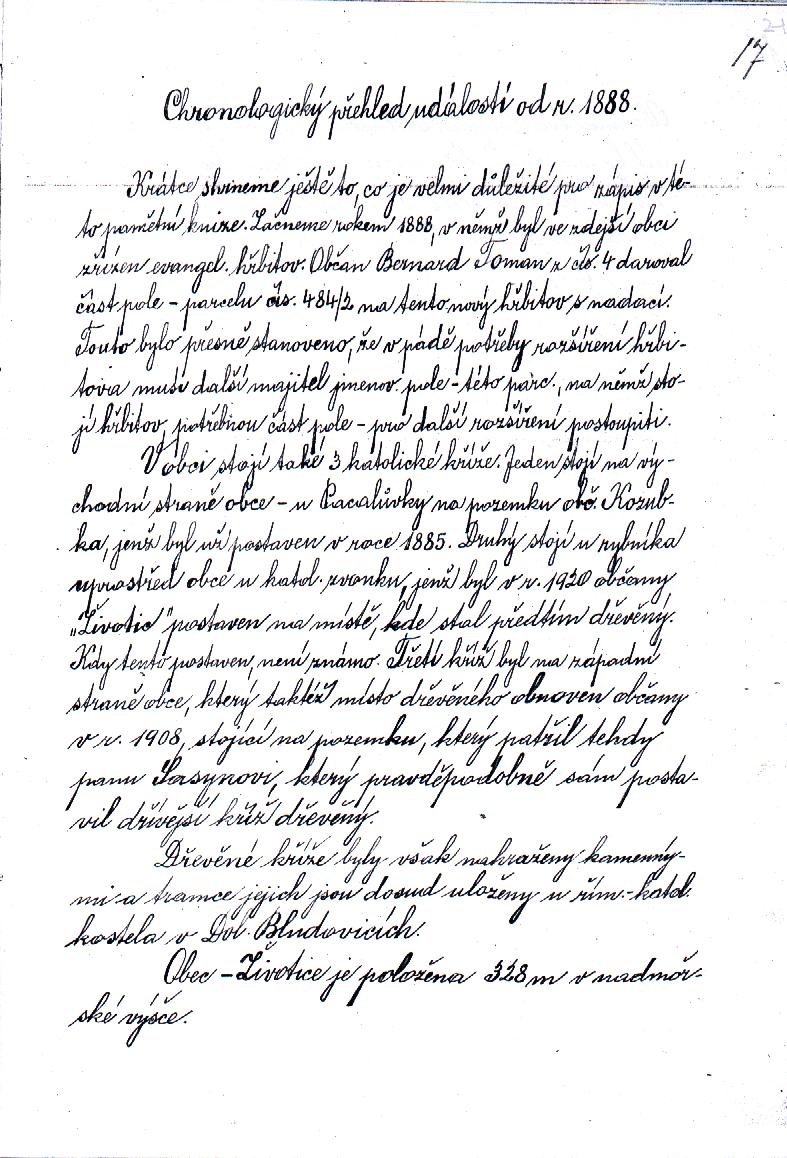 17
Chronologický přehled událostí od r. 1888.
Krátce shrneme ještě to, co je velmi důležité pro zápis v té-
to pamětní knize. Začneme rokem 1888, v němž byl ve zdejší obci
zřízen evangel. hřbitov. Občan Bernard Toman z čís. 4 daroval
část pole - parcelu čís. 484/2 na tento nový hřbitov s nadací.
Touto bylo přesně stanoveno, že v pádě potřeby rozšíření hřbi-
tova musí další majitel jmenov. pole - této parc., na němž sto-
jí hřbitov, potřebnou část pole - pro další rozšíření postoupiti.
V obci stojí také 3 katolické kříže. Jeden stojí na vý-
chodní straně obce - u Pacalůvky na pozemku obč. Kozub-
ka, jenž byl už postaven v roce 1885. Druhý stojí u rybníka
uprostřed obce u katol. zvonku, jenž byl v r. 1920 občany
„Životic" postaven na místě, kde stal předtím dřevěný.
Kdy tento postaven, není známo. Třetí kříž byl na západní
straně obce, který taktéž místo dřevěného obnoven občany
v r. 1908, stojící na pozemku, který patřil tehdy
panu Sasynovi, který pravděpodobně sám posta-
vil dřívější kříž dřevěný.
Dřevěné kříže byly však nahraženy kamenný-
mi a tramce jejich jsou dosud uloženy u řím.-katol.
kostela v Dol. Bludovicích.
Obec - Životice je položena 328 m v nadmoř-
ské výšce.